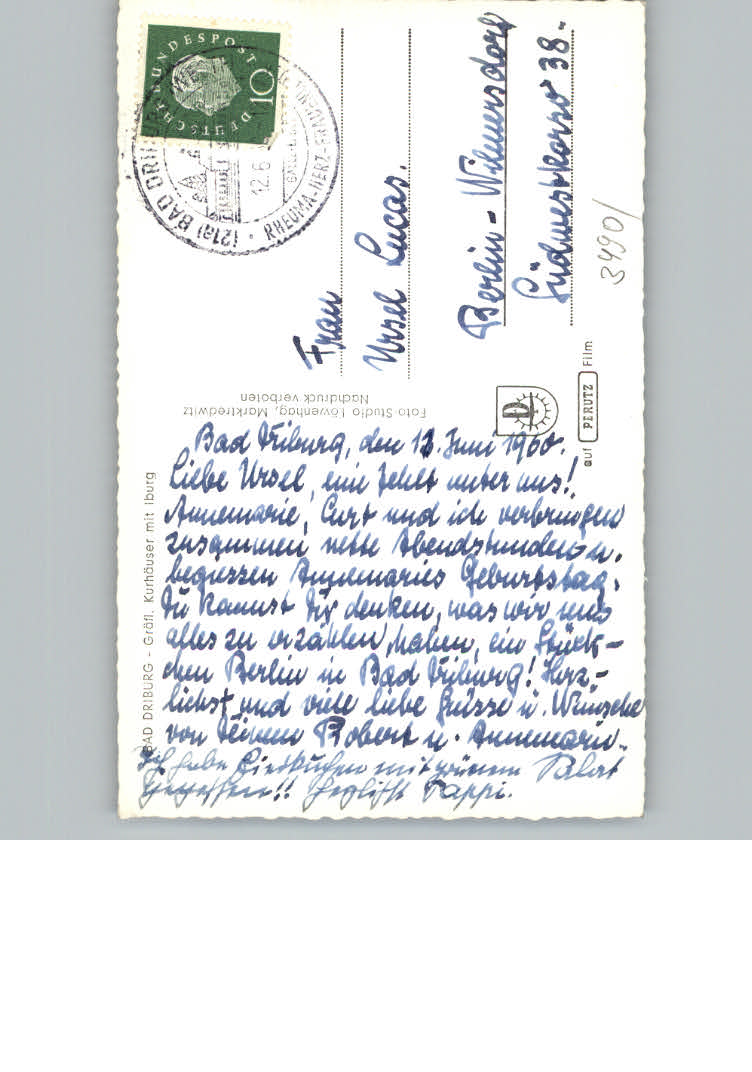 DEUTSCHE BUNDESPOST
10
(21a) BAD DRIBURG
12.6
RHEUMA-HERZ-FRAUEN
Frau
Ursel Lucas.
Berlin-Wilmersdorf
Südwestkorso 38.-
3490/
Foto-Studio Löwenhag, Marktredwitz
Nachdruck verboten
D
auf PERUTZ Film
BAD DRIBURG - Gräfl. Kurhäuser mit Iburg
Bad Driburg, den 12. Juni 1960.
Liebe Ursel, eine fehlt unter uns!
Annemarie, Curt und ich verbringen
zusammen nette Abendstunden u.
begiessen Annemaries Geburtstag.
Du kannst Dir denken, was wir uns
alles zu erzählen haben, ein Stück-
chen Berlin in Bad Driburg! Herz-
lichst und viele liebe Grüsse u. Wünsche
von Deinem Robert u. Annemarie.
Ich habe mit grünem
gegessen!! Herzlichst Pappi.